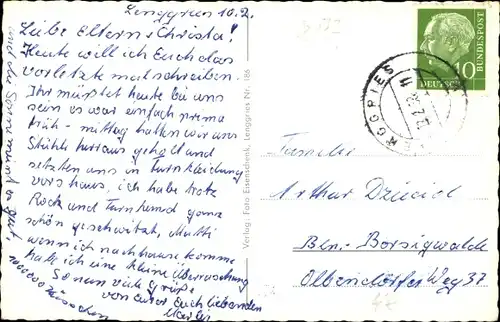 Lenggries 10.2.
Liebe Eltern + Christa!
Heute will ich Euch das
vorletzte mal schreiben.
Ihr müßtet heute bei uns
sein es war einfach prima
früh - mittag hatten wir uns
Stühle heraus geholt und
setzten uns in Turnkleidung
vors Haus, ich habe trotz
Rock und Turnhemd ganz
schön geschwitzt, Mutti
wenn ich nachhause komme
habe ich eine kleine Überraschung
So nun viele Grüße
von eurer Euch liebenden
und die Sonne
Verlag: Foto Eisenschenk, Lenggries Nr. 186
10
DEUTSCHE
BUNDESPOST
LENGGRIES
Familie
Arthur
Bln.- Borsigwalde
Weg 37